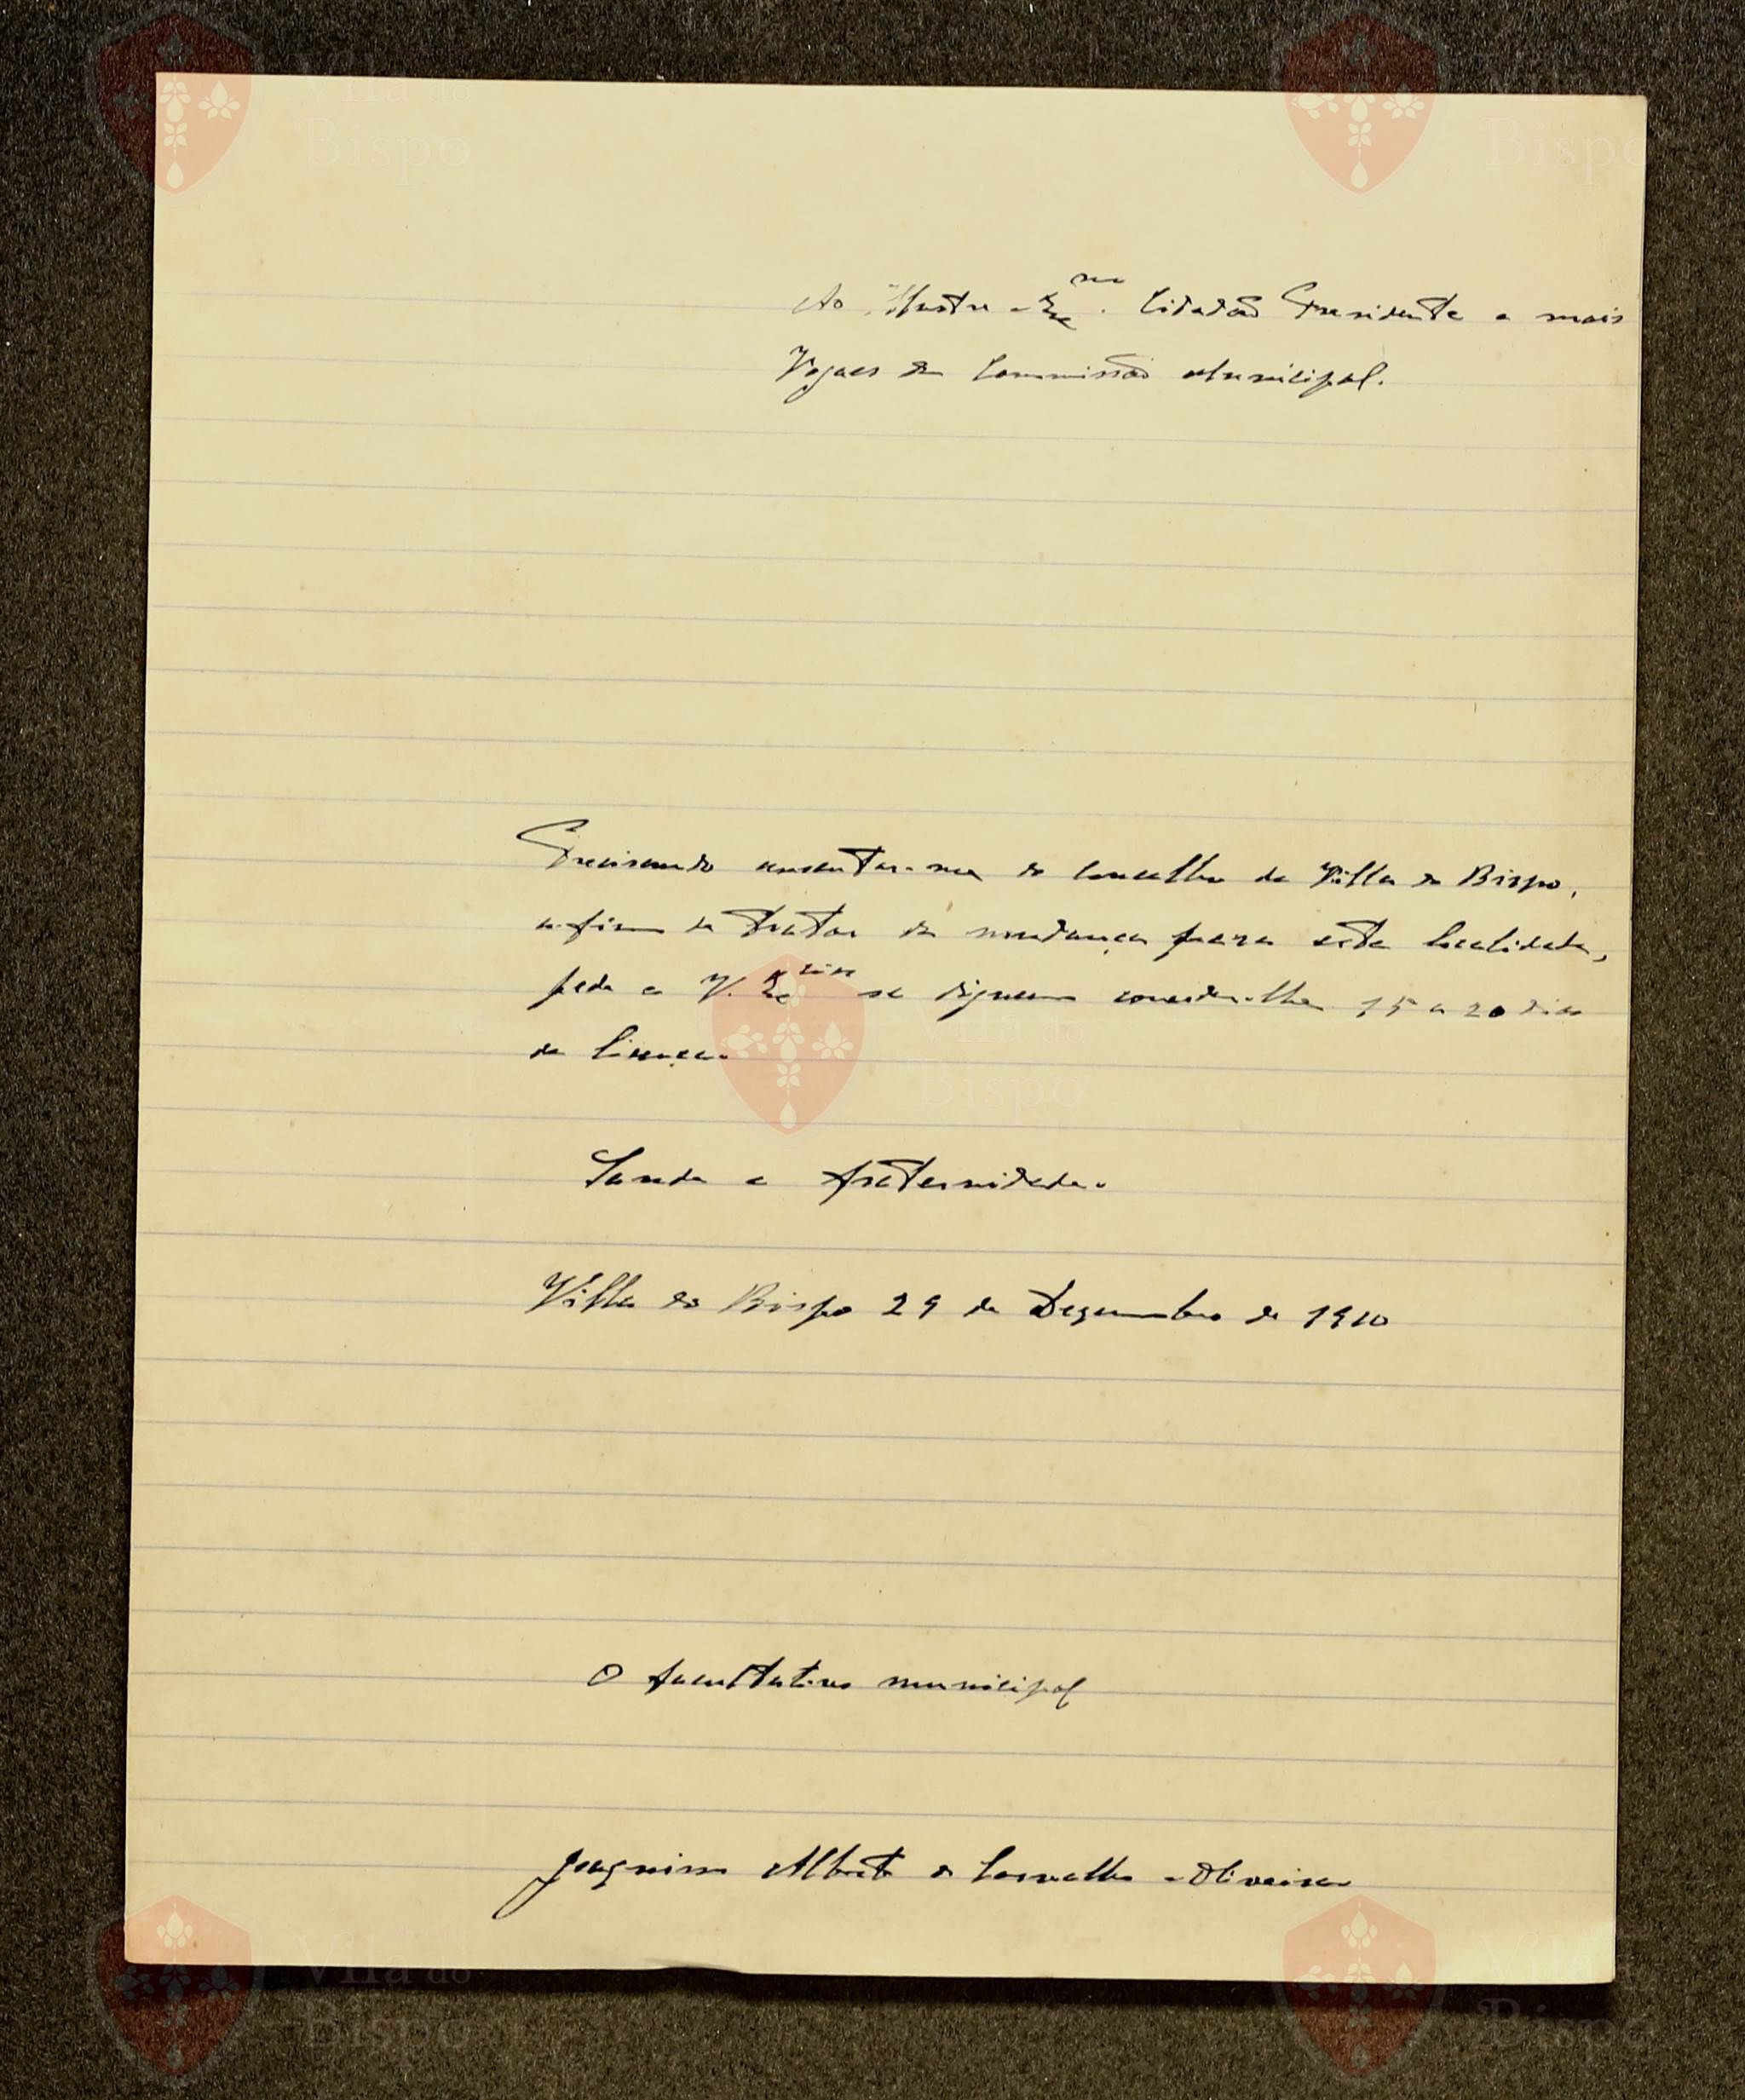 Ao Illustre e Exmo. Cidadão Presidente e mais
Vogaes da Commissão Municipal.
Precisando ausentar-me do concelho de Villa do Bispo,
a-fim de tratar da mudança para esta localidade,
pede a V. Excias se dignem conceder-lhe 15 a 20 dias
de licença.
Saude e fraternidade.
Villa do Bispo 29 de Dezembro de 1910
O facultativo municipal
Joaquim Alberto de Carvalho e Oliveira
Vila do
Bispo